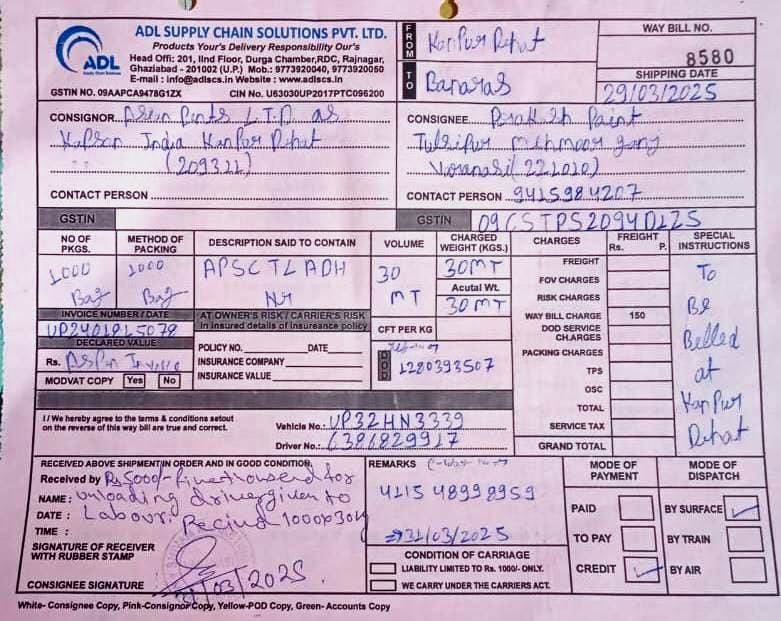 ADL SUPPLY CHAIN SOLUTIONS PVT. LTD.
Products Your's Delivery Responsibility Our's
Head Offi: 201, IInd Floor, Durga Chamber,RDC, Rajnagar,
Ghaziabad - 201002 (U.P.) Mob.: 9773920040, 9773920050
E-mail : info@adlscs.in Website : www.adlscs.in
GSTIN NO. 09AAPCA9478G1ZX CIN No. U63030UP2017PTC096200
ADL
Supply Chain Solutions
FROM Kanpur Dehat
TO Banaras
WAY BILL NO.
8580
SHIPPING DATE
29/03/2025
CONSIGNOR Asian Pents L.T.D as
Kapson India Kanpur Dehat
CONTACT PERSON
CONSIGNEE Prakash Paint
Tulsipur Mehmoor ganj
Varanasi (221010)
CONTACT PERSON 9415984207
GSTIN
GSTIN 09CSTPS2094D1Z5
NO OF PKGS.
1000
Bag
METHOD OF PACKING
1000
Bag
DESCRIPTION SAID TO CONTAIN
APSC TL ADH
VOLUME
30
MT
CHARGED WEIGHT (KGS.)
30MT
Acutal Wt.
30MT
INVOICE NUMBER / DATE
DECLARED VALUE
Rs. As Per Invoice
MODVAT COPY Yes No
AT OWNER'S RISK / CARRIER'S RISK
In insured details of insureance policy
POLICY NO. DATE
INSURANCE COMPANY
INSURANCE VALUE
CFT PER KG
1280393507
CHARGES FREIGHT Rs. P.
FREIGHT
FOV CHARGES
RISK CHARGES
WAY BILL CHARGE 150
DOD SERVICE CHARGES
PACKING CHARGES
TPS
OSC
TOTAL
SERVICE TAX
GRAND TOTAL
SPECIAL INSTRUCTIONS
To
Be
Belled
at
Kanpur
Dehat
I / We hereby agree to the terms & conditions setout
on the reverse of this way bill are true and correct.
Vehicle No.: UP32HN3339
Driver No.: 6386829917
RECEIVED ABOVE SHIPMENT/IN ORDER AND IN GOOD CONDITION
Received by Rs 5000/- five thousend for
NAME : unloading driver given to
DATE : Labour.
TIME :
SIGNATURE OF RECEIVER
WITH RUBBER STAMP
CONSIGNEE SIGNATURE
31/03/2025
REMARKS
4115 48998959
31/03/2025
CONDITION OF CARRIAGE
LIABILITY LIMITED TO Rs. 1000/- ONLY.
WE CARRY UNDER THE CARRIERS ACT.
MODE OF PAYMENT
PAID
TO PAY
CREDIT ✓
MODE OF DISPATCH
BY SURFACE ✓
BY TRAIN
BY AIR
White- Consignee Copy, Pink-Consignor Copy, Yellow-POD Copy, Green- Accounts Copy